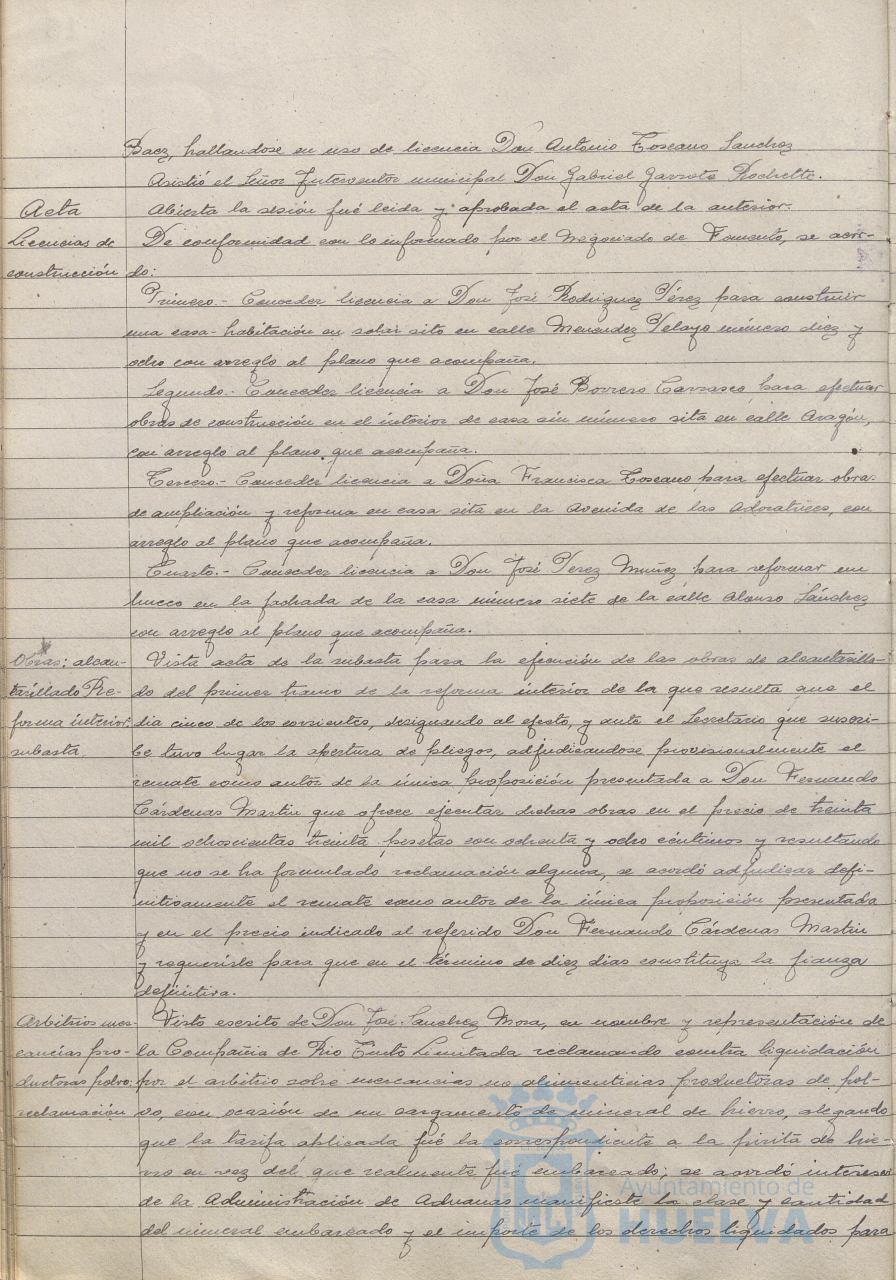 Baez, hallandose en uso de licencia Don Antonio Toscano Sanchez
Asistió el Señor Interventor municipal Don Gabriel Garrote Rochette.
Acta
Abierta la sesión fué leida y aprobada el acta de la anterior.
Licencias de
construcción
De conformidad con lo informado por el Negociado de Fomento, se acor-
do:
Primero.- Conceder licencia a Don José Rodriguez Pérez para construir
una casa-habitación en solar sito en calle Menendez Pelayo número diez y
ocho con arreglo al plano que acompaña.
Segundo.- Conceder licencia a Don José Borrero Carrasco para efectuar
obras de construcción en el interior de casa sin número sita en calle Aragón,
con arreglo al plano que acompaña.
Tercero.- Conceder licencia a Doña Francisca Toscano para efectuar obra
de ampliación y reforma en casa sita en la Avenida de las Adoratrices, con
arreglo al plano que acompaña.
Cuarto.- Conceder licencia a Don José Perez Muñoz para reformar un
hueco en la fachada de la casa número siete de la calle Alonso Sánchez
con arreglo al plano que acompaña.
Obras: alcan-
tarillado Re-
forma interior:
subasta
Vista acta de la subasta para la ejecución de las obras de alcantarilla-
do del primer tramo de la reforma interior de la que resulta que el
dia cinco de los corrientes, designando al efecto, y ante el Secretario que suscri-
be tuvo lugar la apertura de pliegos, adjudicandose provisionalmente el
remate como autor de la única proposición presentada a Don Fernando
Cárdenas Martin que ofrece ejecutar dichas obras en el precio de treinta
mil ochoscientas treinta pesetas con ochenta y ocho céntimos y resultando
que no se ha formulado reclamación alguna, se acordó adjudicar defi-
nitivamente el remate como autor de la única proposición presentada
y en el precio indicado al referido Don Fernando Cárdenas Martin
y requerirle para que en el término de diez dias constituya la fianza
definitiva.
Arbitrios mer-
cancías pro-
ductoras polvo:
reclamación
Visto escrito de Don José Sanchez Mora, en nombre y representación de
la Compañia de Rio Tinto Limitada reclamando contra liquidación
por el arbitrio sobre mercancias no alimenticias productoras de pol-
vo, con ocasión de un cargamento de mineral de hierro, alegando
que la tarifa aplicada fué la correspondiente a la pirita de hie-
rro en vez del que realmente fué embarcado; se acordó interesar
de la Administración de Aduanas manifieste la clase y cantidad
del mineral embarcado y el importe de los derechos liquidados para
Ayuntamiento de
HUELVA